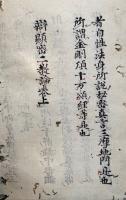 若自性法身所說秘密真言三摩地門是也
所謂金剛頂十万頌經等是也
辯顯密二教論卷上